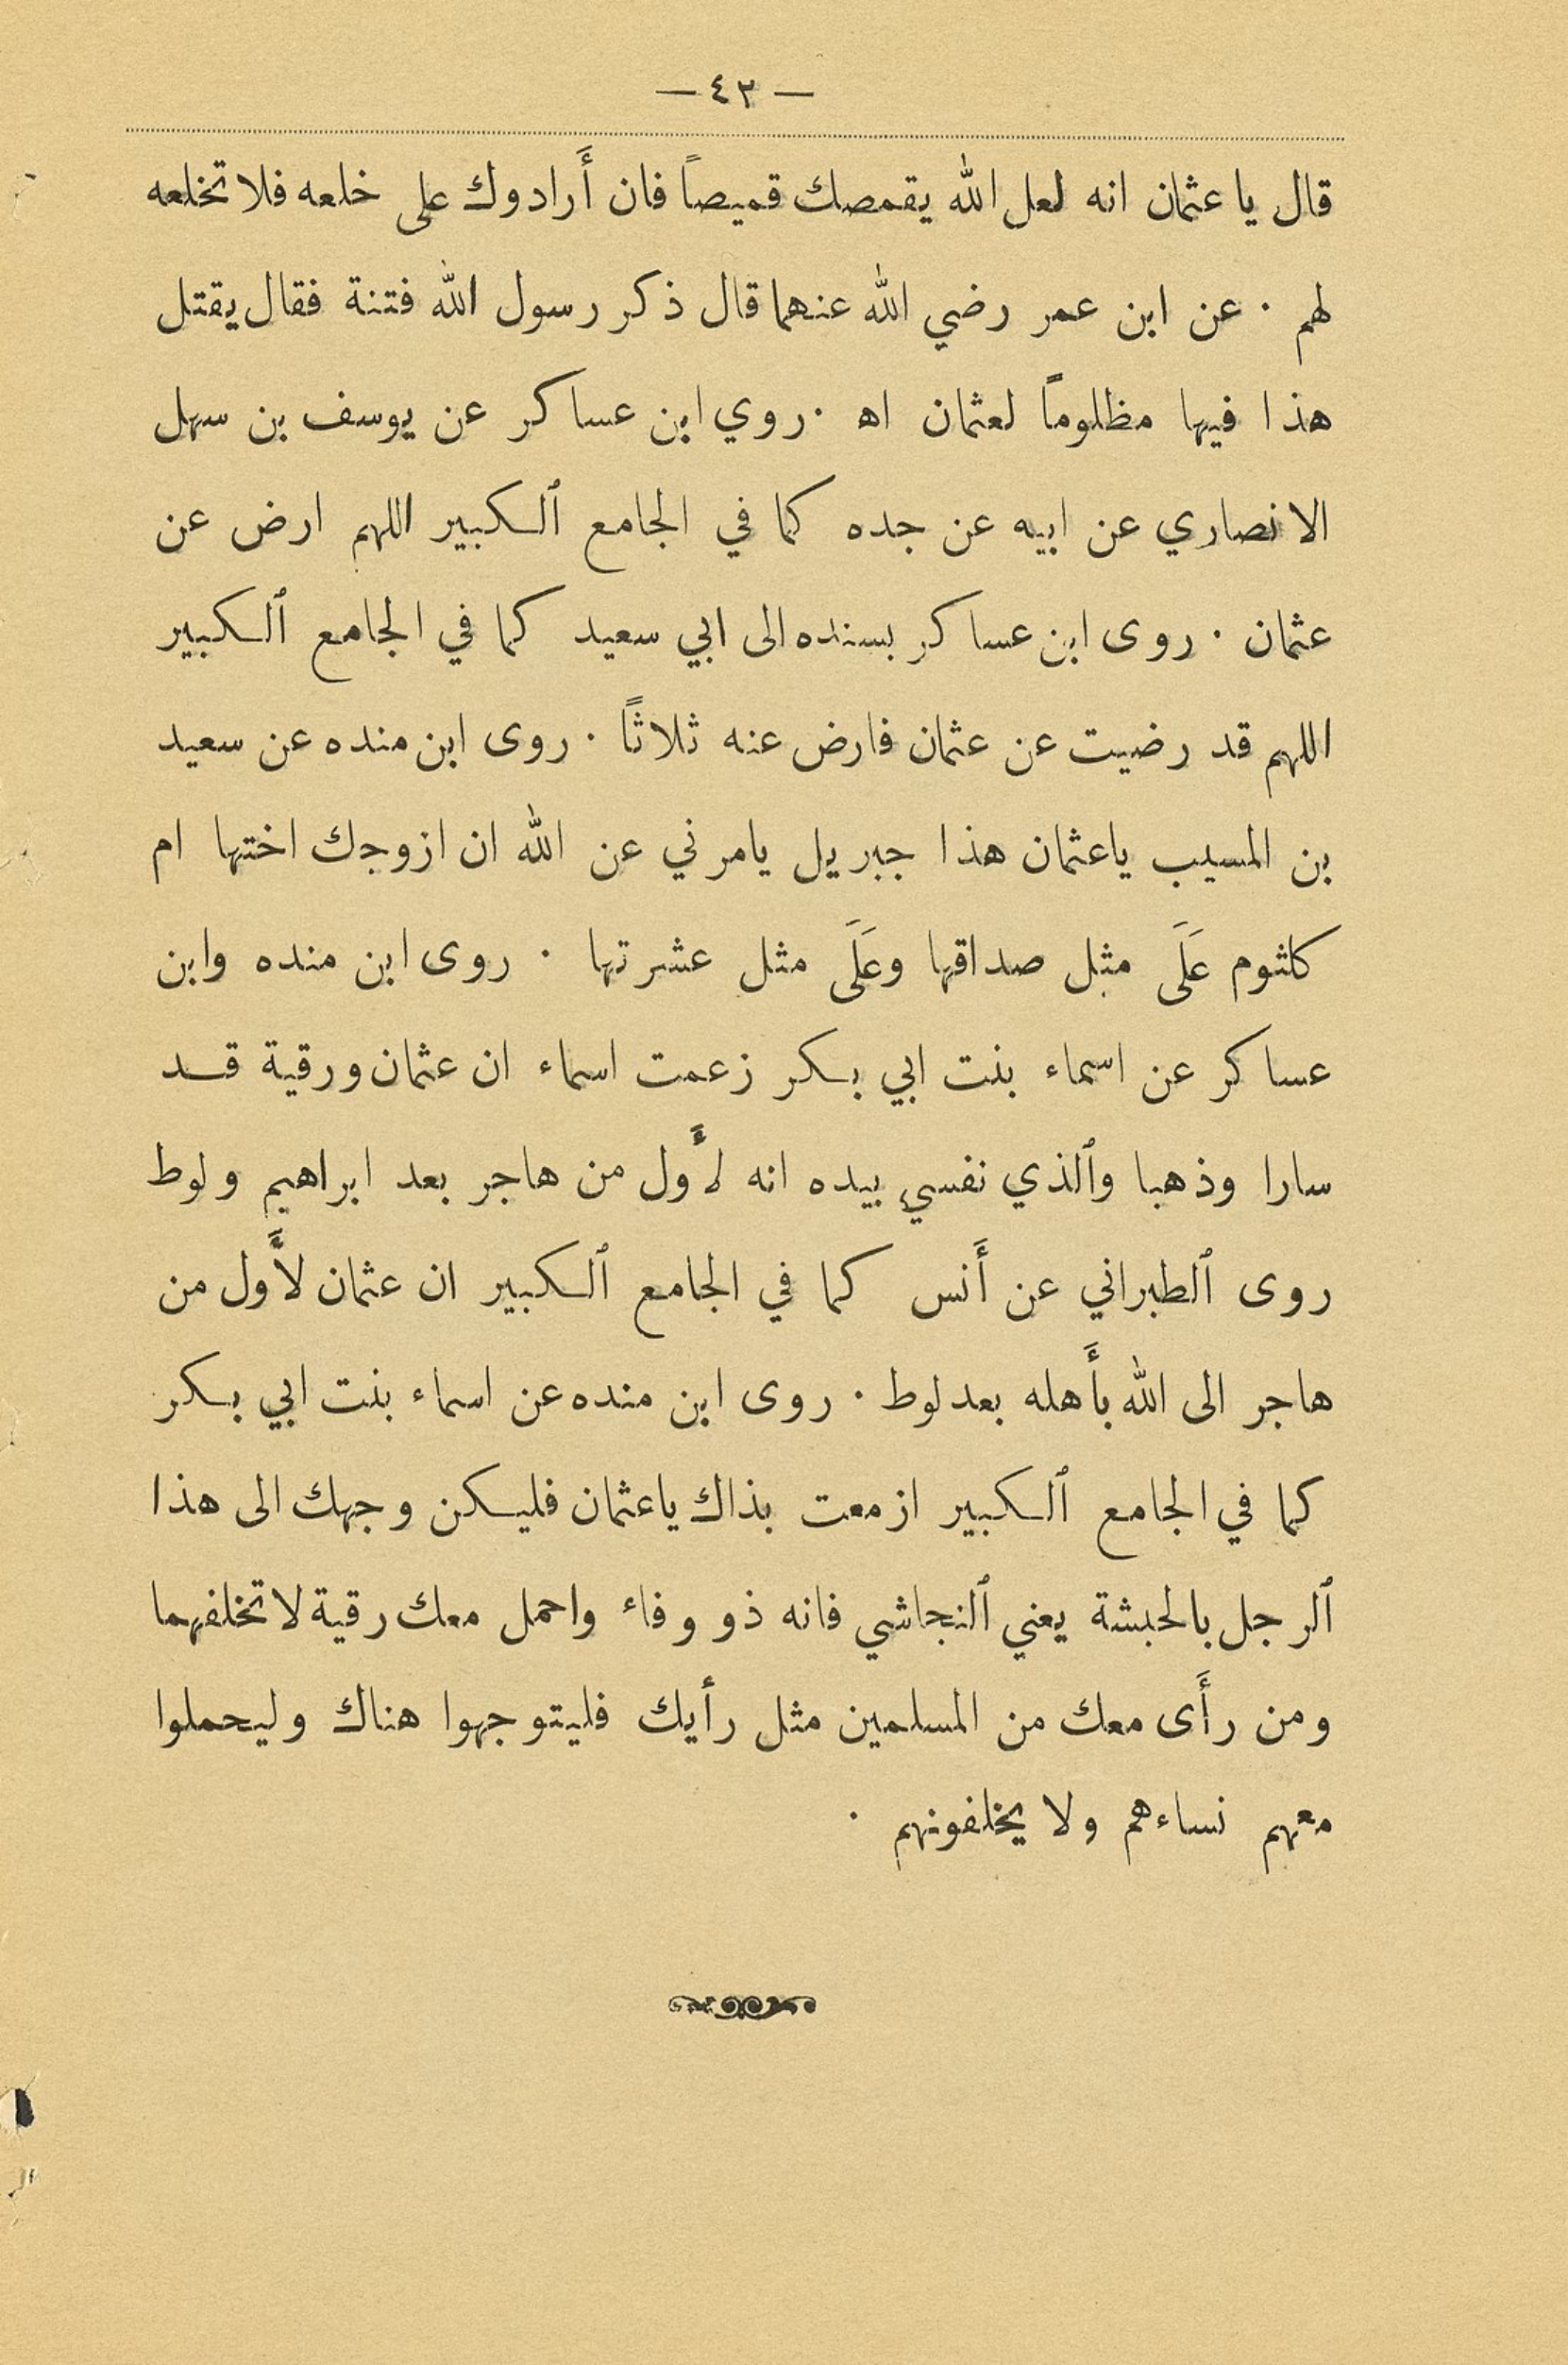 — ٤٣ —
قال يا عثمان انه لعل الله يقمصك قميصاً فان أَرادوك على خلعه فلا تخلعه
لهم ٠ عن ابن عمر رضي الله عنهما قال ذكر رسول الله فتنة فقال يقتل
هذا فيها مظلوماً لعثمان اه ٠ روي ابن عساكر عن يوسف بن سهل
الانصاري عن ابيه عن جده كما في الجامع ٱلكبير اللهم ارض عن
عثمان ٠ روى ابن عساكر بسنده الى ابي سعيد كما في الجامع ٱلكبير
اللهم قد رضيت عن عثمان فارض عنه ثلاثاً ٠ روى ابن منده عن سعيد
بن المسيب ياعثمان هذا جبريل يامرني عن الله ان ازوجك اختها ام
كلثوم عَلَى مثل صداقها وعَلَى مثل عشرتها ٠ روى ابن منده وابن
عساكر عن اسماء بنت ابي بكر زعمت اسماء ان عثمان ورقية قد
سارا وذهبا وٱلذي نفسي بيده انه لأَول من هاجر بعد ابراهيم ولوط
روى ٱلطبراني عن أَنس كما في الجامع ٱلكبير ان عثمان لأَول من
هاجر الى الله بأَهله بعد لوط ٠ روى ابن منده عن اسماء بنت ابي بكر
كما في الجامع ٱلكبير ازمعت بذاك ياعثمان فليكن وجهك الى هذا
ٱلرجل بالحبشة يعني ٱلنجاشي فانه ذو وفاء واحمل معك رقية لا تخلفهما
ومن رأَى معك من المسلمين مثل رأيك فليتوجهوا هناك وليحملوا
معهم نساءهم ولا يخلفونهم ٠